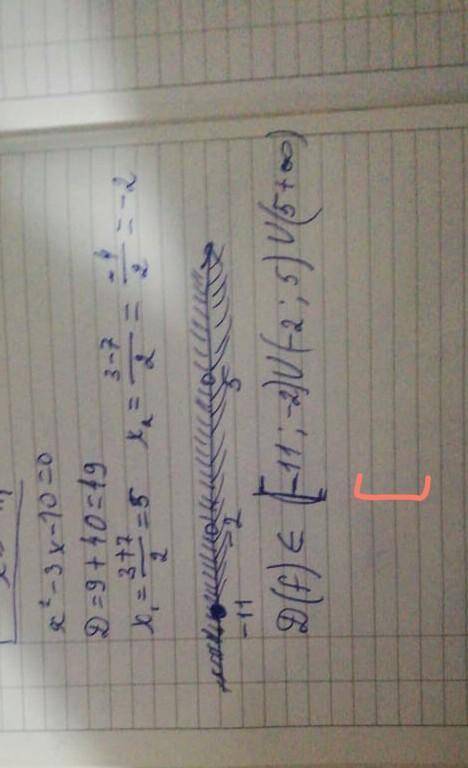 x² - 3x - 10 = 0
D = 9 + 40 = 49
x₁ = \frac{3+7}{2} = 5 x₂ = \frac{3-7}{2} = \frac{-4}{2} = -2
-11 -2 5
D(f) ∈ [-11; -2) U (-2; 5) U (5 +∞)